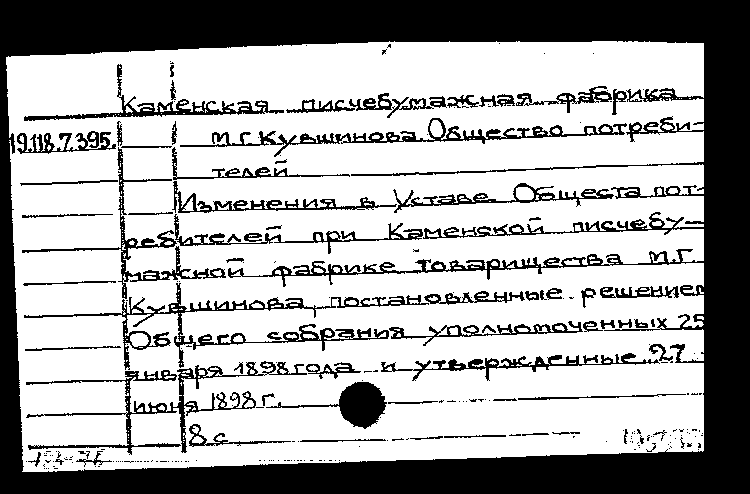 Каменская писчебумажная фабрика
19.118.7.395. М.Г.Кувшинова. Общество потреби-
телей
Изменения в Уставе Общества пот-
ребителей при Каменской писчебу-
мажной фабрике товарищества М.Г.
Кувшинова, постановленные решением
Общего собрания уполномоченных 25
января 1898 года и утвержденные 27
июня 1898 г.
8 с